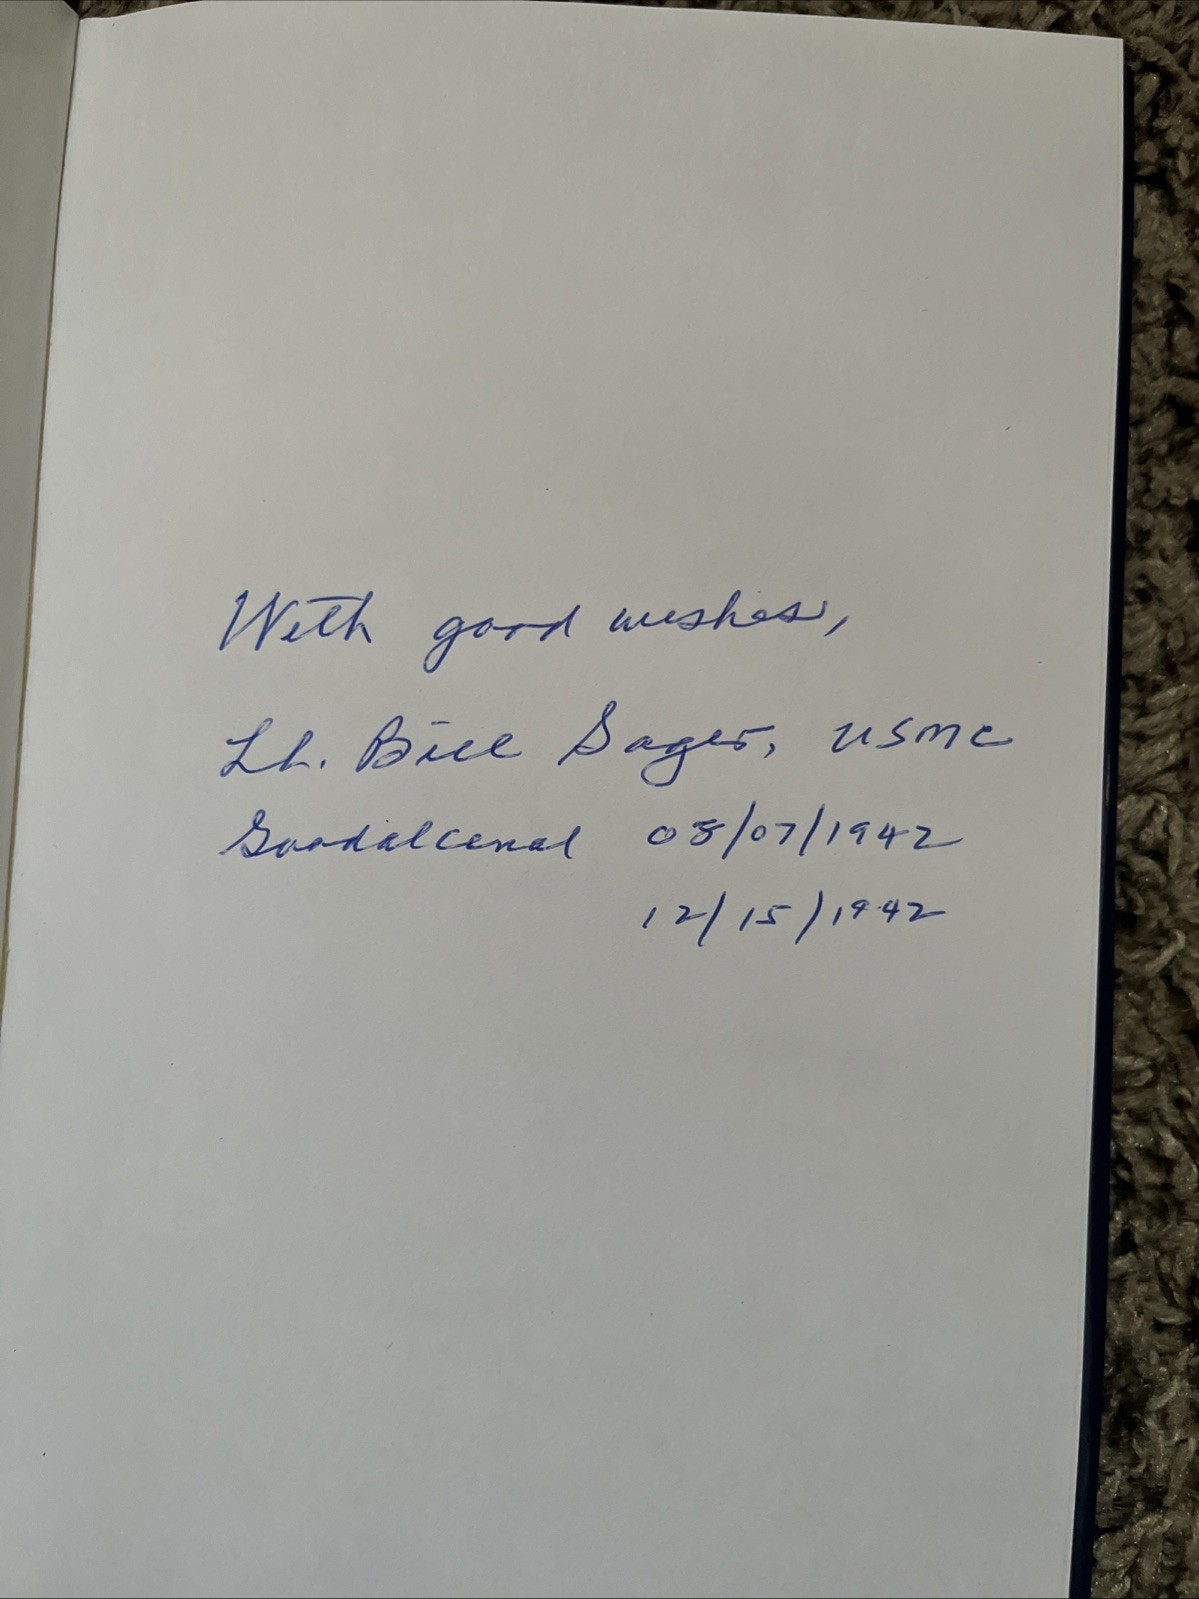 With good wishes,
Lt. Bill Sager, USMC
Guadalcanal 08/07/1942
12/15/1942